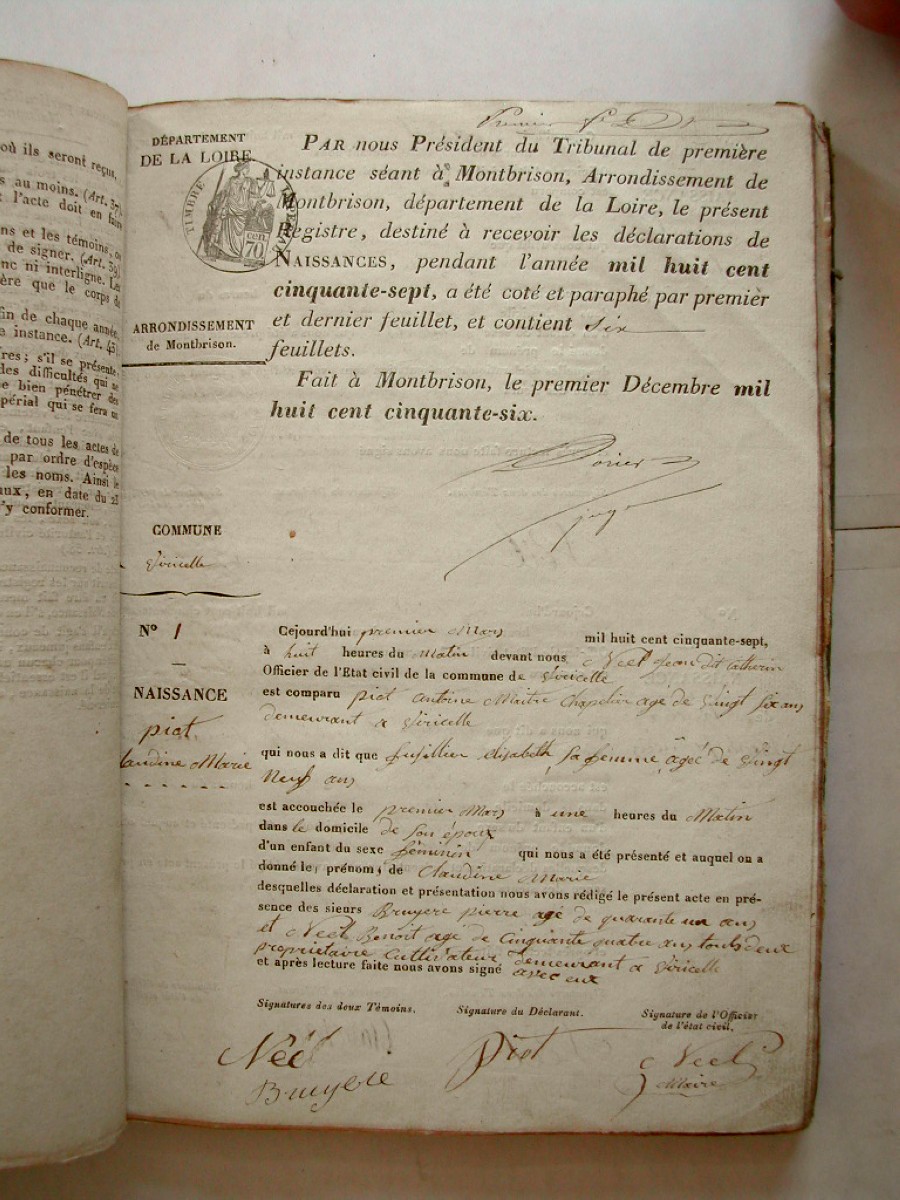 où ils seront reçus,
s au moins. (Art. 37).
l'acte doit en faire
ns et les témoins, ou
de signer. (Art. 39).
nc ni interligne. Les
ère que le corps de
fin de chaque année,
e instance. (Art. 43).
res ; s'il se présente
des difficultés qui se
e bien pénétrer des
périal qui se fera un
de tous les actes de
par ordre d'espèce
les noms. Ainsi le
aux, en date du 28
'y conformer.
Premier
DÉPARTEMENT
DE LA LOIRE
TIMBRE IMPÉRIAL
70 cen.
PAR nous Président du Tribunal de première
instance séant à Montbrison, Arrondissement de
Montbrison, département de la Loire, le présent
Registre, destiné à recevoir les déclarations de
NAISSANCES, pendant l'année mil huit cent
cinquante-sept, a été coté et paraphé par premier
et dernier feuillet, et contient six
feuillets.
ARRONDISSEMENT
de Montbrison.
Fait à Montbrison, le premier Décembre mil
huit cent cinquante-six.
juge
COMMUNE
Viricelle
N° 1
NAISSANCE
piot
laudine Marie
Cejourd'hui premier Mars mil huit cent cinquante-sept,
à huit heures du Matin devant nous Néel Jean dit catherin
Officier de l'Etat civil de la commune de Viricelle
est comparu piot antoine Maitre Chapelier agé de Vingt Six ans
demeurant a Viricelle
qui nous a dit que fusillier elisabeth sa femme agée de Vingt
Neuf ans
est accouchée le premier Mars à une heures du Matin
dans le domicile de son époux
d'un enfant du sexe féminin qui nous a été présenté et auquel on a
donné les prénoms de claudine Marie
desquelles déclaration et présentation nous avons rédigé le présent acte en pré-
sence des sieurs Bruyere pierre agé de quarante un ans
et Néel Benoit agé de Cinquante quatre ans touts deux
proprietaire Cultivateur demeurant a Viricelle
et après lecture faite nous avons signé avec eux
Signatures des deux Témoins. Signature du Déclarant. Signature de l'Officier
de l'état civil.
Néel Piot Néel
Bruyere Maire